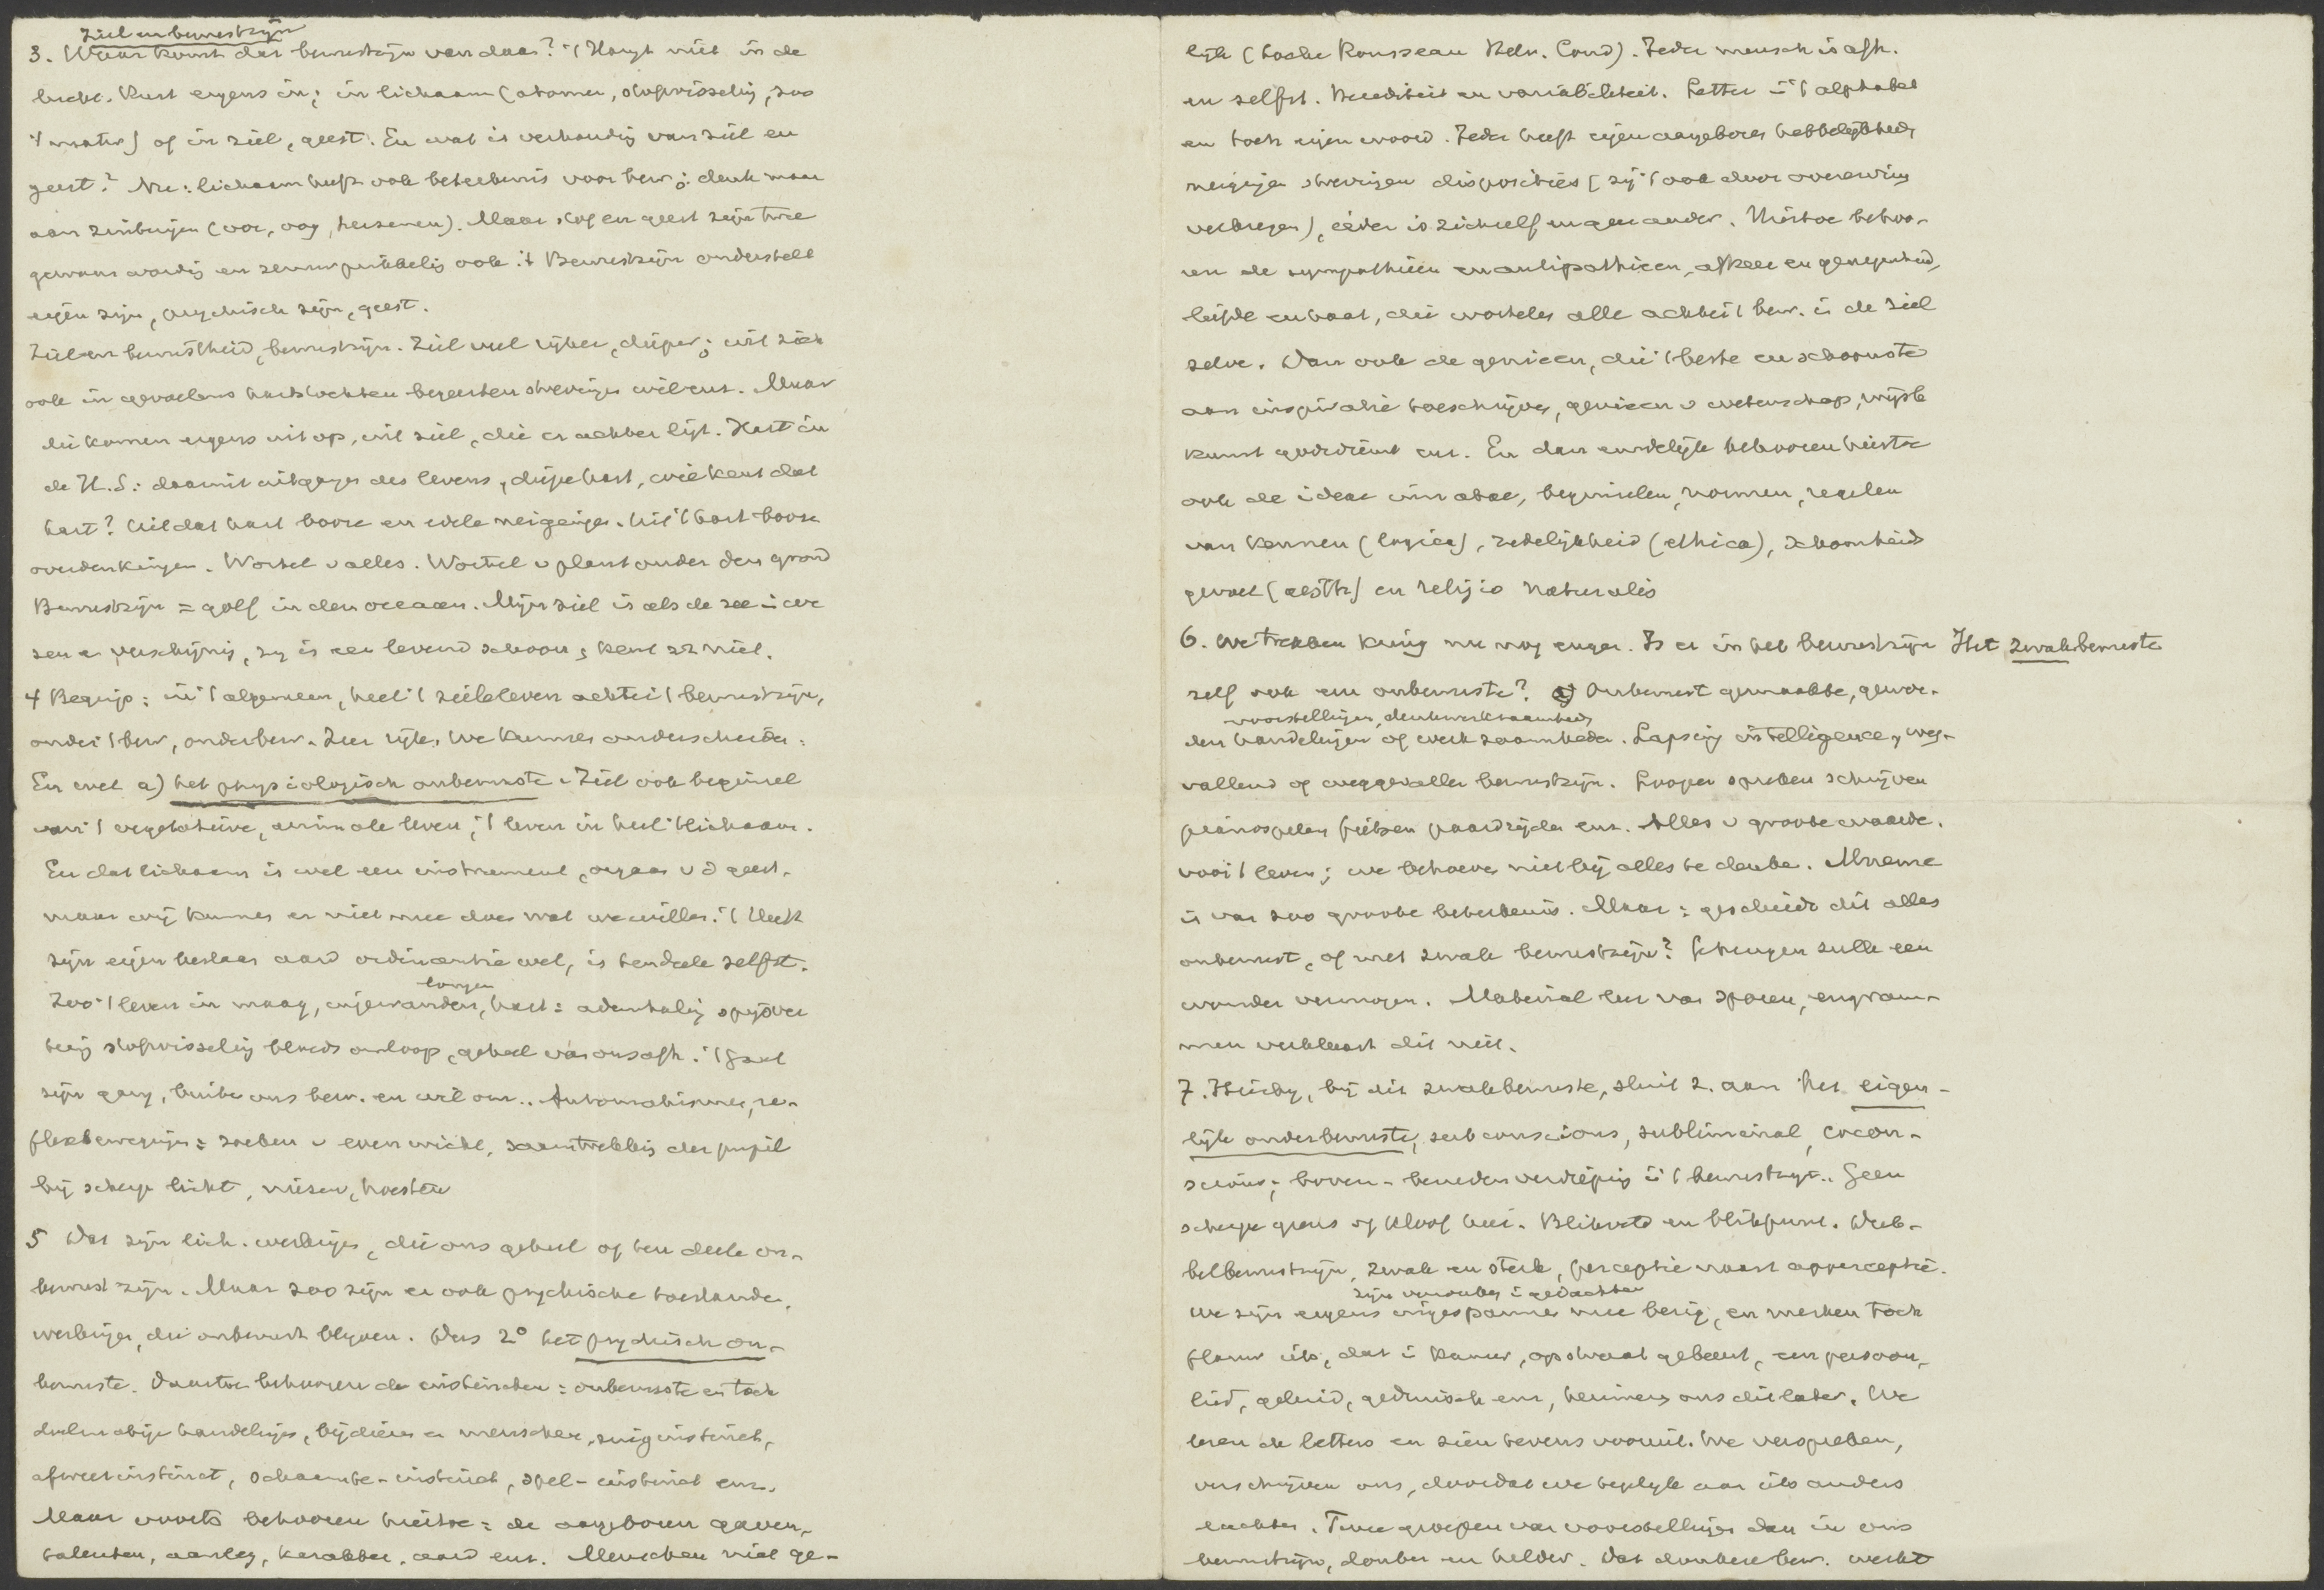 Ziel en bewustzijn
3. Waar komt dat bewustzijn van daan? 't Hangt niet in de
lucht. Rust ergens in; in lichaam (atomen, stofwisseling, zoo
't mater) of in ziel, geest. En wat is verhouding van ziel en
geest? Nu: lichaam heeft ook beteekenis voor bew.; denk maar
aan zintuigen (oor, oog, hersenen). Maar stof en geest zijn twee
gewaarwording en zenuwprikkeling ook. 't Bewustzijn onderstelt
eigen zijn, psychisch zijn, geest.
Ziel en bewustheid, bewustzijn. Ziel veel rijker, dieper; uit zich
ook in gevoelens hartstochten begeerten strevingen wil enz. Maar
die komen ergens uit op, uit ziel, die er achter ligt. Hart in
de H.S.: daaruit uitgangen des levens, diepe hart, wie kent dat
hart? Uit dat hart booze en edele neigingen. Uit 't hart booze
overdenkingen. Wortel v alles. Wortel v plant onder den grond
Bewustzijn = golf in den oceaan. Mijn ziel is als de zee in
zij is een levend schoon, kent zz niet.
4 Begrip: in 't algemeen, heel 't zieleleven achter 't bewustzijn,
onder 't bew, onderbew. Zeer rijk. We kunnen onderscheiden:
En wel a) het physiologisch onbewuste. Ziel ook beginsel
van 't vegetatieve, animale leven, 't leven in heel 't lichaam.
En dat lichaam is wel een instrument, orgaan v d geest,
maar wij kunnen er niet mee doen wat we willen. 't Heeft
zijn eigen bestaan aard ordinantie wet, is ten deele zelfst.
longen
Zoo 't leven in maag, ingewanden, hart: ademhaling spijsver
tering stofwisseling bloedsomloop, geheel van ons afh. 't Gaat
zijn gang, buiten ons bew. en wil om. Automatismen, re-
flexbewegingen: zoeken v evenwicht, samentrekking der pupil
bij scherp licht, niezen, hoesten
5 Dat zijn lich. werkingen, die ons geheel of ten deele on-
bewust zijn. Maar zoo zijn er ook psychische toestanden,
werkingen, die onbewust blijven. Dus 2° het psychisch on-
bewuste. Daartoe behooren de instincten: onbewuste en toch
doelmatige handelingen, bij dieren en menschen, zuiginstinct,
afweerinstinct, schaamte-instinct, spel-instinct enz.
Maar voorts behooren hiertoe: de aangeboren gaven,
talenten, aanleg, karakter, aard enz. Menschen niet ge-
lijk (Locke Rousseau Helv. Cond). Ieder mensch is afh.
en zelfst. Herediteit en variabiliteit. Letter in 't alphabet
en toch eigen woord. Ieder heeft eigen aangeboren hebbelijkheden
neigingen strevingen disposities (zij 't ook door overerving
verkregen), ieder is zichzelf en geen ander. Hiertoe behoo-
ren de sympathieën en antipathieën, afkeer en genegenheid,
liefde en haat, die wortelen alle achter 't bew. in de ziel
zelve. Dan ook de genieën, die 't beste en schoonste
aan inspiratie toeschrijven, genieën v wetenschap, wijsb
kunst godsdienst enz. En dan eindelijk behooren hiertoe
ook de ideae innatae, beginselen, normen, regelen
van kennen (logica), zedelijkheid (ethica), schoonheids
gevoel (aesth) en religio naturalis
6. We trekken kring nu nog enger. Is er in het bewustzijn Het zwakbewuste
zelf ook een onbewuste? a) Onbewust gemaakte, gewor-
voorstellingen, denkwerkzaamheden
den handelingen of werkzaamheden. Lapsing intelligence, weg-
vallend of weggevallen bewustzijn. Loopen spreken schrijven
pianospelen fietsen paardrijden enz. Alles v groote waarde.
voor 't leven; we behoeven niet bij alles te denken. Mneme
is van zoo groote beteekenis. Maar: geschiedt dit alles
onbewust, of met zwak bewustzijn? Geheugen zulk een
wonder vermogen. Materialisme van sporen, engram-
men verklaart dit niet.
7. Hierbij, bij dit zwakbewuste, sluit z. aan het eigen-
lijk onderbewuste, subconscious, subliminal, cocon-
scious; boven- beneden verdieping in 't bewustzijn. Geen
scherpe grens of kloof hier. Blikveld en blikpunt. Dub-
belbewustzijn, zwak en sterk, perceptie naast apperceptie.
zijn verzonken in gedachten
We zijn ergens ingespannen mee bezig, en merken toch
flauw iets, dat in kamer, op straat gebeurt, een persoon,
lied, geluid, gedruisch enz, herinneren ons die later. We
lezen de letters en zien tevens vooruit. We verspreken,
verschrijven ons, doordat we tegelijk aan iets anders
dachten. Twee groepen van voorstellingen dan in ons
bewustzijn, donker en helder. Dat donkere bew. werkt